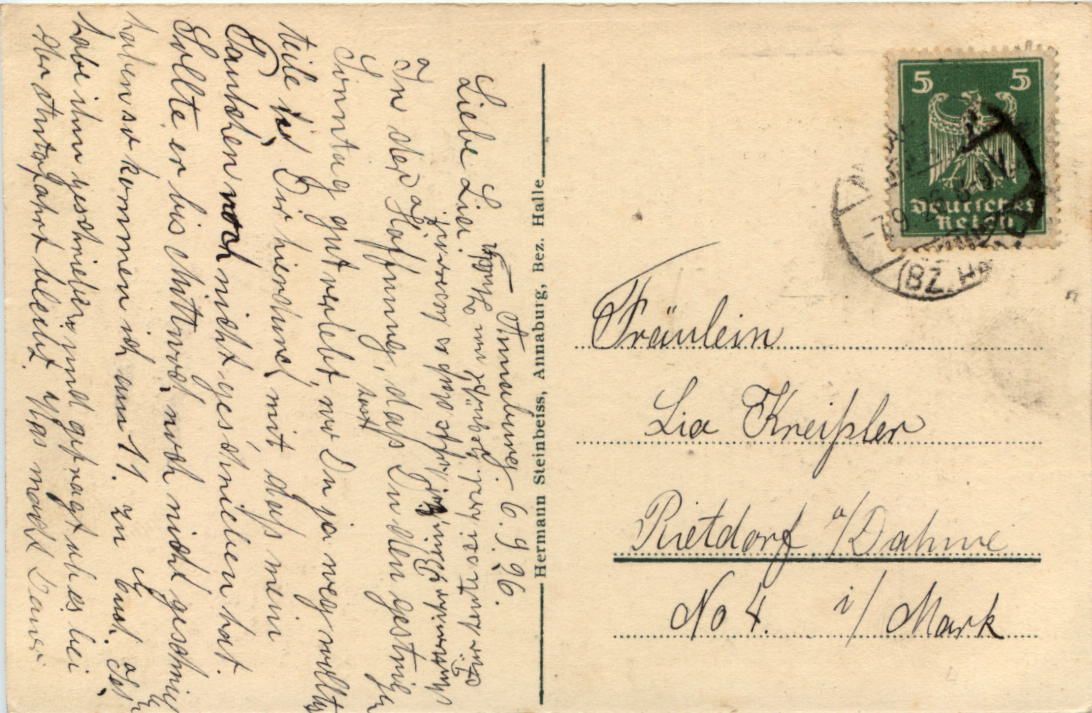 Annaburg. 6.9.26.
Liebe Lia!
In der Hoffnung, daß Du den gestrigen
Sonntag gut verlebt, wo Du ja weg wolltest
teile Dir hierdurch mit daß mein
Paulchen noch nicht geschrieben hat.
Sollte er bis Mittwoch noch nicht geschrieben
haben so kommen ich am 11. zu Euch. Ich
habe ihm geschrieben und gefragt ob es bei
der Autofahrt bleibt. Was macht Dein
Hermann Steinbeiss, Annaburg, Bez. Halle
5 5
Deutsches
Reich
(BZ. HA
Fräulein
Lia Kreißler
Rietdorf a/Dahme
No 4. i/Mark